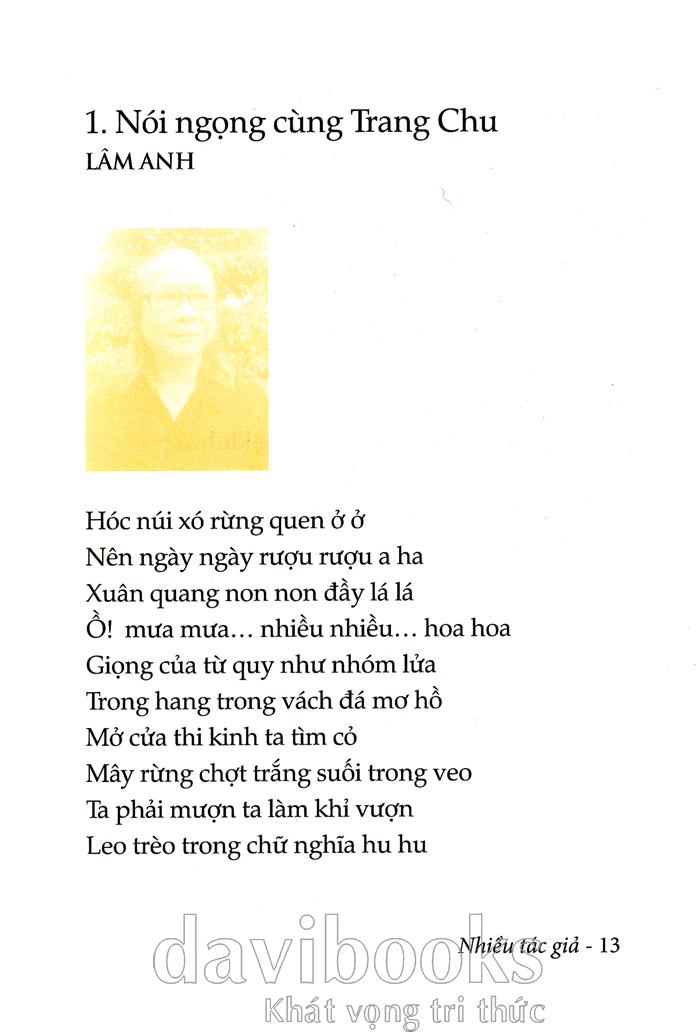 1. Nói ngọng cùng Trang Chu
LÂM ANH
Hóc núi xó rừng quen ở ở
Nên ngày ngày rượu rượu a ha
Xuân quang non non đầy lá lá
Ồ! mưa mưa... nhiều nhiều... hoa hoa
Giọng của từ quy như nhóm lửa
Trong hang trong vách đá mơ hồ
Mở cửa thi kinh ta tìm cỏ
Mây rừng chợt trắng suối trong veo
Ta phải mượn ta làm khỉ vượn
Leo trèo trong chữ nghĩa hu hu
Nhiều tác giả - 13
davibooks
Khát vọng tri thức